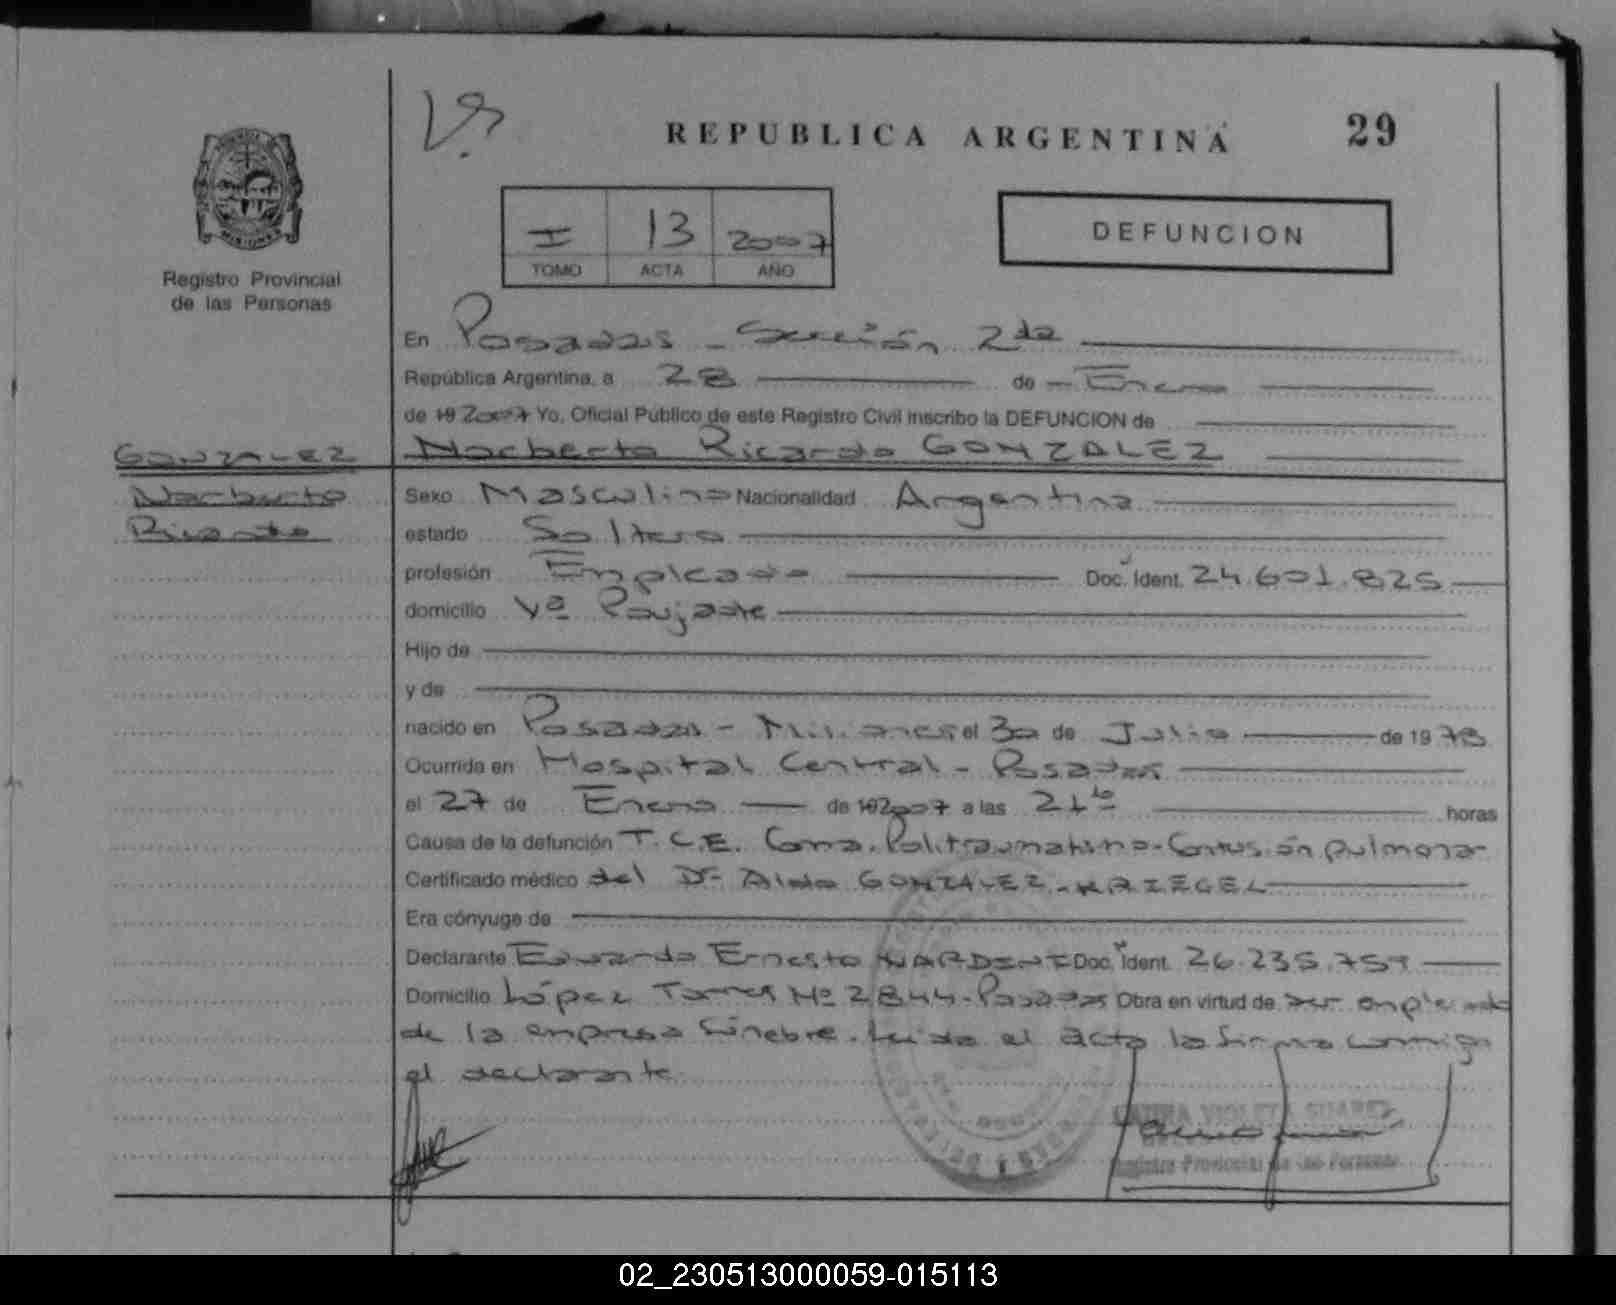 REPUBLICA ARGENTINA 29
DEFUNCION
I 13 2007
TOMO ACTA AÑO
PROVINCIA
MISIONES
Registro Provincial
de las Personas
En Posadas - Sección 2da
República Argentina, a 28 de Enero
de 19 2007 Yo, Oficial Público de este Registro Civil inscribo la DEFUNCION de
GONZALEZ
Norberto
Ricardo
Norberto Ricardo GONZALEZ
Sexo Masculino Nacionalidad Argentina
estado Soltero
profesión Empleado Doc. Ident. 24.601.825
domicilio Vª Poujade
Hijo de
y de
nacido en Posadas - Misiones el 30 de Julio de 19
Ocurrida en Hospital Central - Posadas
el 27 de Enero de 19 2007 a las 21 horas
Causa de la defunción T.C.E. Coma. Politraumatismo - Contusión pulmonar
Certificado médico del Dr Aldo GONZALEZ - KRIEGEL
Era cónyuge de
Declarante Eduardo Ernesto NARDINI Doc. Ident. 26.235.759
Domicilio López Torres Nº 2844 - Posadas Obra en virtud de ser empleado
de la empresa fúnebre. Leída el acta la firma conmigo
el declarante.
LAURA VIOLETA SUAREZ
Registro Provincial de las Personas
02_230513000059-015113